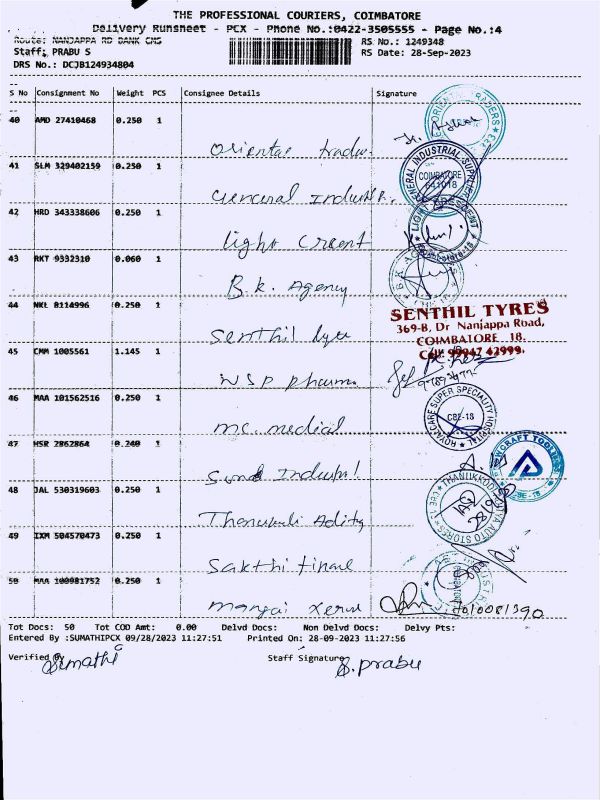 THE PROFESSIONAL COURIERS, COIMBATORE
Delivery Runsheet - PCX - Phone No.:0422-3505555 - Page No.:4
Route: NANJAPPA RD BANK CMS RS No.: 1249348
Staff: PRABU S RS Date: 28-Sep-2023
DRS No.: DCJB124934804
S No Consignment No Weight PCS Consignee Details Signature
40 AMD 27410468 0.250 1
Oriental trader
41 SLM 329402159 0.250 1
General Industr
42 HRD 343338606 0.250 1
light Cresent
43 RKT 9332310 0.060 1
B.k. Agency
44 NKL 8114996 0.250 1
Senthil tyre
SENTHIL TYRES
369-B, Dr Nanjappa Road,
COIMBATORE 18.
Cell: 99947 42999.
45 CMM 1005561 1.145 1
WSP pharma
46 MAA 101562516 0.250 1
mc. medical
47 HSR 2862864 0.240 1
Industrial
48 JAL 530319603 0.250 1
49 IXM 504570473 0.250 1
Sakthi finance
50 MAA 100981752 0.250 1
mangai xerox
GENERAL INDUSTRIAL SUPPLIER
COIMBATORE
641018
LIGHT CRESCENT
ROYALCARE SUPER SPECIALITY HOSPITAL
CBE-18
Tot Docs: 50 Tot COD Amt: 0.00 Delvd Docs: Non Delvd Docs: Delvy Pts:
Entered By :SUMATHIPCX 09/28/2023 11:27:51 Printed On: 28-09-2023 11:27:56
Verified By Sumathi Staff Signature S. prabu